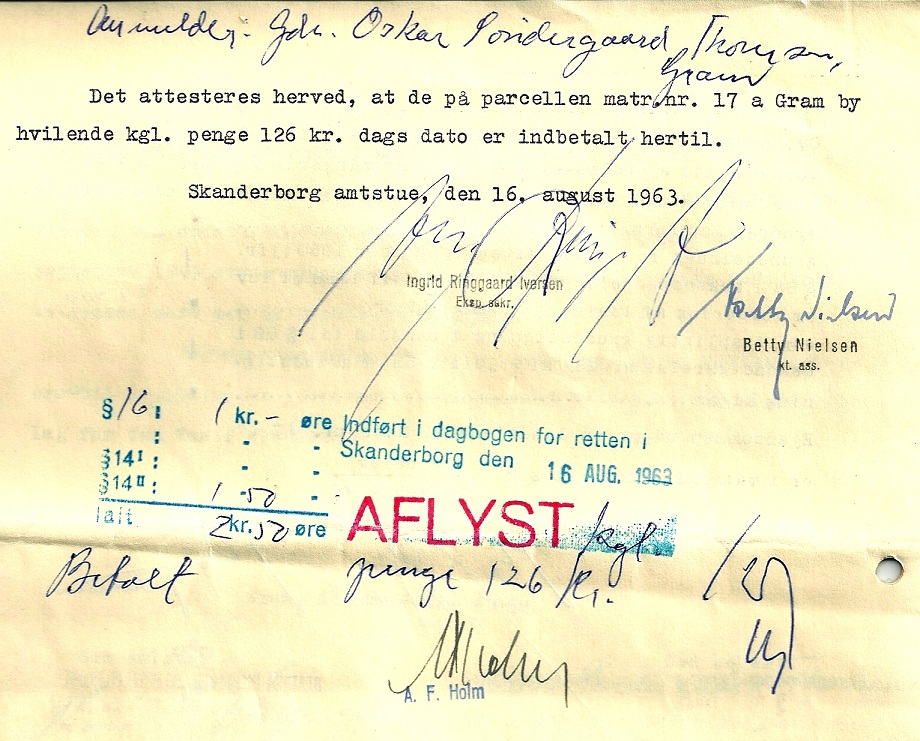 Anmelder: Gdr. Oskar Søndergaard Thomsen,
Gram
Det attesteres herved, at de på parcellen matr.nr. 17 a Gram by
hvilende kgl. penge 126 kr. dags dato er indbetalt hertil.
Skanderborg amtstue, den 16. august 1963.
Ingrid Ringgaard Iversen
Eksp.sekr.
Betty Nielsen
Betty Nielsen
kt. ass.
§ 16: 1 kr. - øre
§14 I : - -
§14 II : 1 - 50 -
Ialt 2 kr. 50 øre
Indført i dagbogen for retten i
Skanderborg den 16 AUG. 1963
AFLYST kgl.
penge 126 kr.
Betalt
A. F. Holm